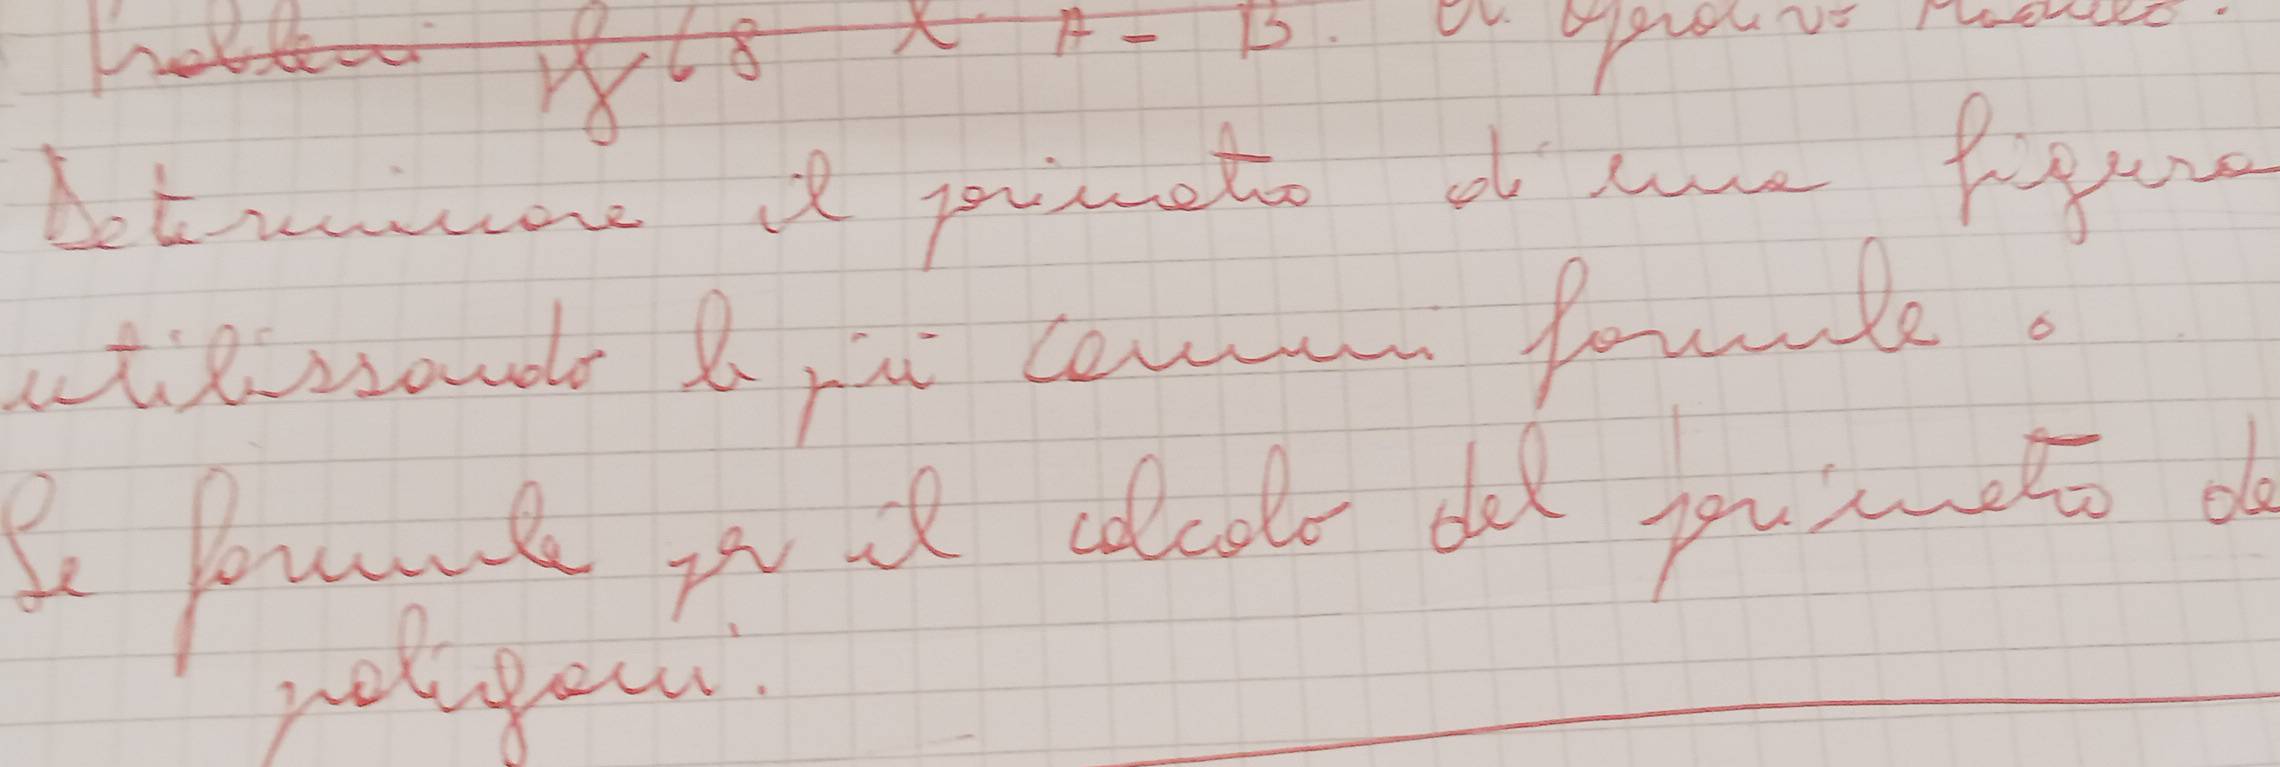 Problemi pg 68 X A - B.
Determinare il perimetro di una figura
utilizzando le più comuni formule o
Le formule per il calcolo del perimetro de
poligoni.